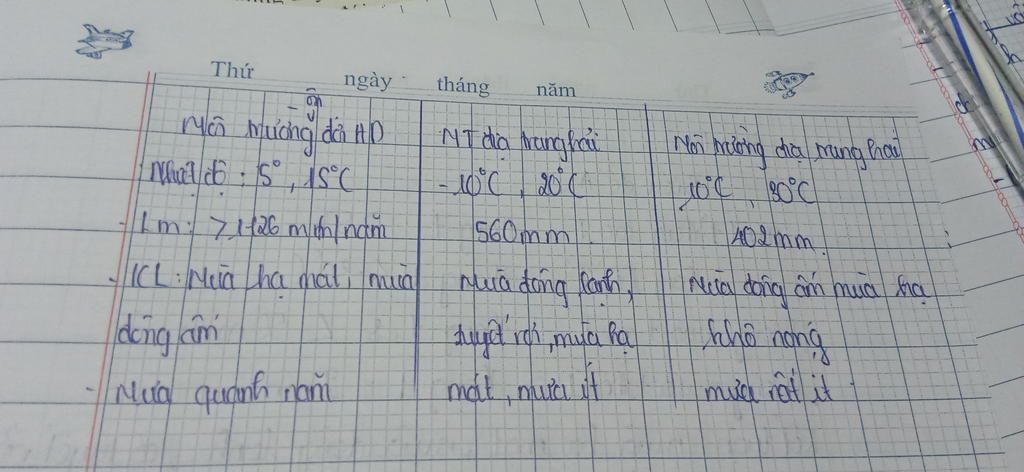 Thứ ngày tháng năm
Môi trường đới HD
MT địa trung hải
Môi trường địa trung hải
Nhiệt độ : 5°, 15°C
- 10°C, 20°C
10°C, 20°C
- Lm: > 1126 mm/năm
560mm
402mm
- KL: Mùa hạ mát, mùa
đông ấm
Mùa đông lạnh,
tuyết rơi, mùa hạ
mát, mưa ít
Mùa đông ấm mùa hạ
khô nóng
mưa rất ít
- Mưa quanh năm